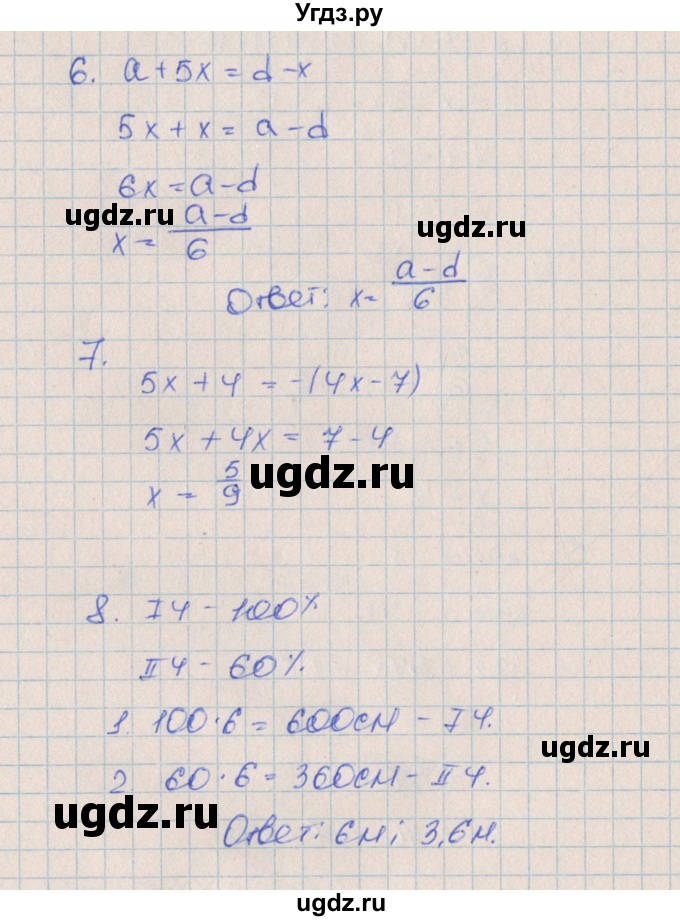 Угдз.ру
6. a + 5x = d - x
5x + x = a - d
6x = a - d
ugdz.ru
x = a - d / 6
ugdz.ru
Ответ: x = a - d / 6
7.
5x + 4 = -(4x - 7)
5x + 4x = 7 - 4
x = 5/9
ugdz.ru
8. I ч - 100%
II ч - 60%.
1. 100 · 6 = 600см - I ч.
ugdz.ru
2. 60 · 6 = 360см - II ч.
ugdz.ru
Ответ: 6м; 3,6м.
ugdz.ru